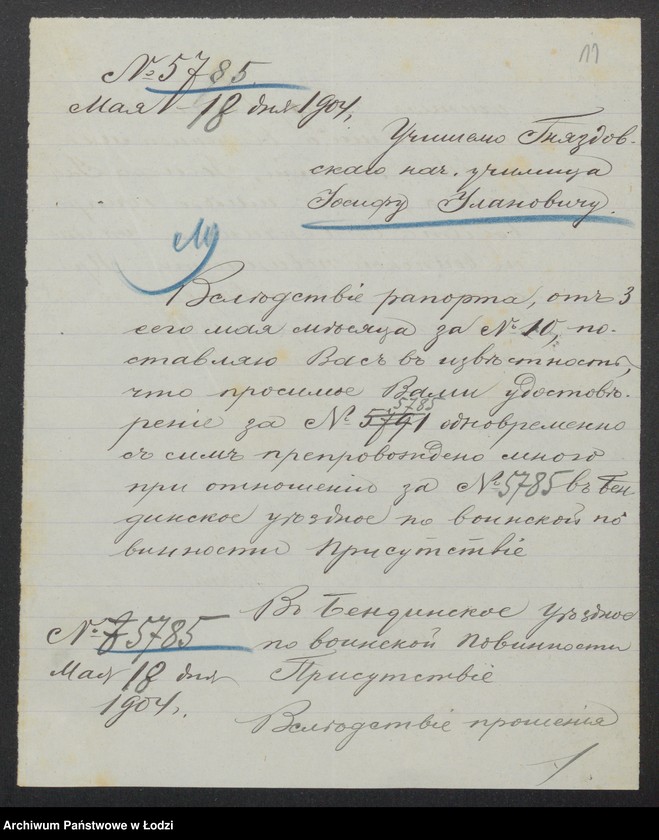 № 5785.
11
Мая 18 дня 1904,
Учителю Гняздов-
скаго нач. училища
Іосифу Улановичу.
Вслѣдствіе рапорта, отъ 3
сего мая мѣсяца за № 10, по-
ставляю Васъ въ извѣстность,
что просимое Вами удостовѣ-
5785
реніе за № 5791 одновременно
съ симъ препровождено мною
при отношеніи за № 5785 въ Бен-
динское уѣздное по воинской по-
винности Присутствіе
Въ Бендинское уѣздное
№ 5785
по воинской повинности
Мая 18 дня
Присутствіе
1904,
Вслѣдствіе прошенія
Archiwum Państwowe w Łodzi